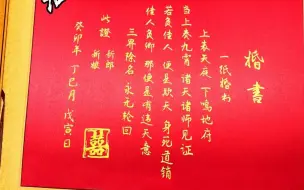 婚書
一纸婚书
上奏天庭 下鸣地府
当上奏九霄 诸天诸师见证
若负佳人 便是欺天 身死道销
佳人负卿 那便是有违天意
三界除名 永无轮回
此證 新郎
新娘
癸卯年 丁巳月 戊寅日
囍